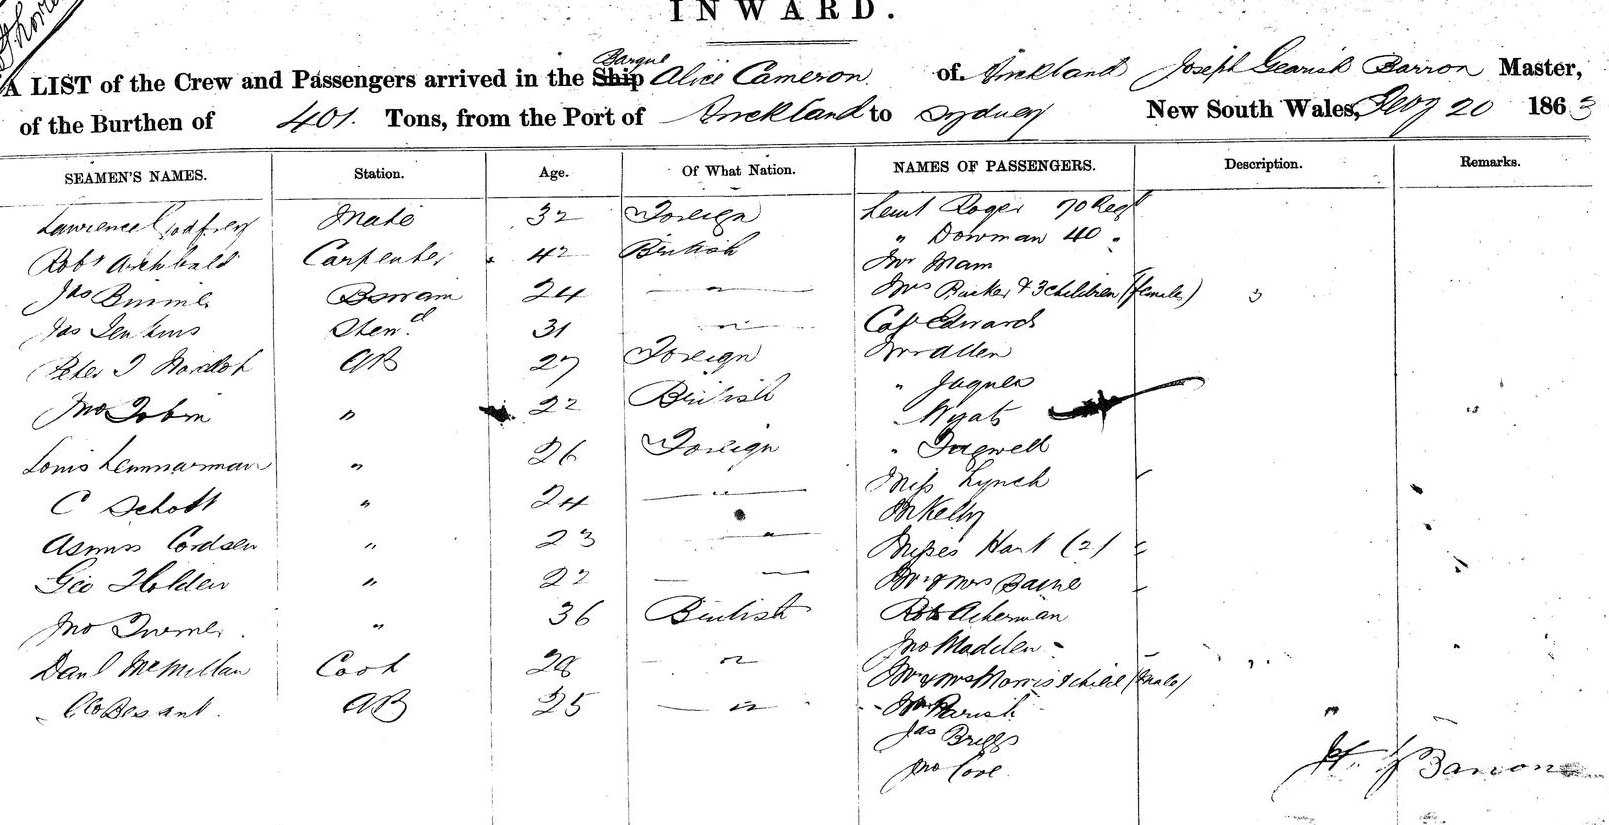 INWARD.
Barque
A LIST of the Crew and Passengers arrived in the Ship Alice Cameron of Auckland Joseph Gearish Barron Master,
of the Burthen of 401. Tons, from the Port of Auckland to Sydney New South Wales, 20 1863
SEAMEN'S NAMES. Station. Age. Of What Nation. NAMES OF PASSENGERS. Description. Remarks.
Lawrence Godfrey Mate 32 Foreign Lieut Roger 70 Regt
" Dowman 40 "
Robt Archbald Carpenter 42 British Mr Mam
Jas Binnie Bswain 24 — " — Mrs Rucker & 3 children (female) 3
Jas Jenkins Stewd 31 — " — Capt Edwards
Peter J 27 AB Foreign Mr Allen
" Jaques
Jno Tobin " 22 British " Wyatt
Louis Lemmarman " 26 Foreign " Tugwell
Miss Lynch
C Schott " 24 — " — Mr Kelly
Cordsen " 23 — " — Misses Hart (2)
Geo Holden " 22 — — Mr & Mrs Baine
Jno Turner " 36 British Robt Acherman
Jno Madden
Danl McMillan Cook 28 — " — Mr & Mrs Morris & child (male)
Geo Besant AB 25 — " — Mr Parish
Jas Briggs
Jno Cove
Barron